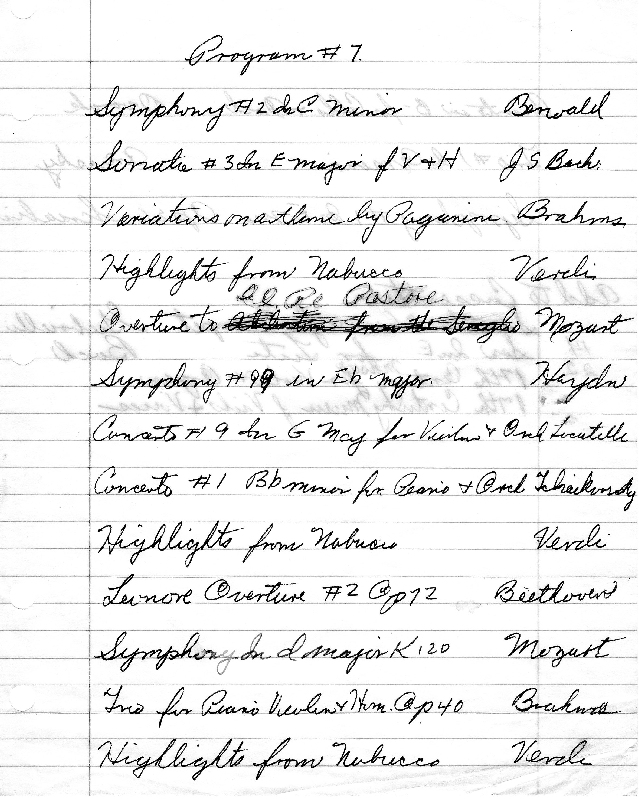 Program #7.
Symphony #2 In C minor Berwald
Sonata #3 In E major f V + H J S Bach.
Variations on a theme by Paganini Brahms
Highlights from Nabucco Verdi
Il Re Pastore
Overture to Abduction from the Seraglio Mozart
Symphony #99 in Eb major. Haydn
Concerto #9 In G Maj for Violin + Orch Locatelli
Concerto #1 Bb minor for Piano + Orch Tchaikovsky
Highlights from Nabucco Verdi
Leonore Overture #2 Op 72 Beethoven
Symphony In d major K 120 Mozart
Trio for Piano Violin + Horn. Op 40 Brahms
Highlights from Nabucco Verdi